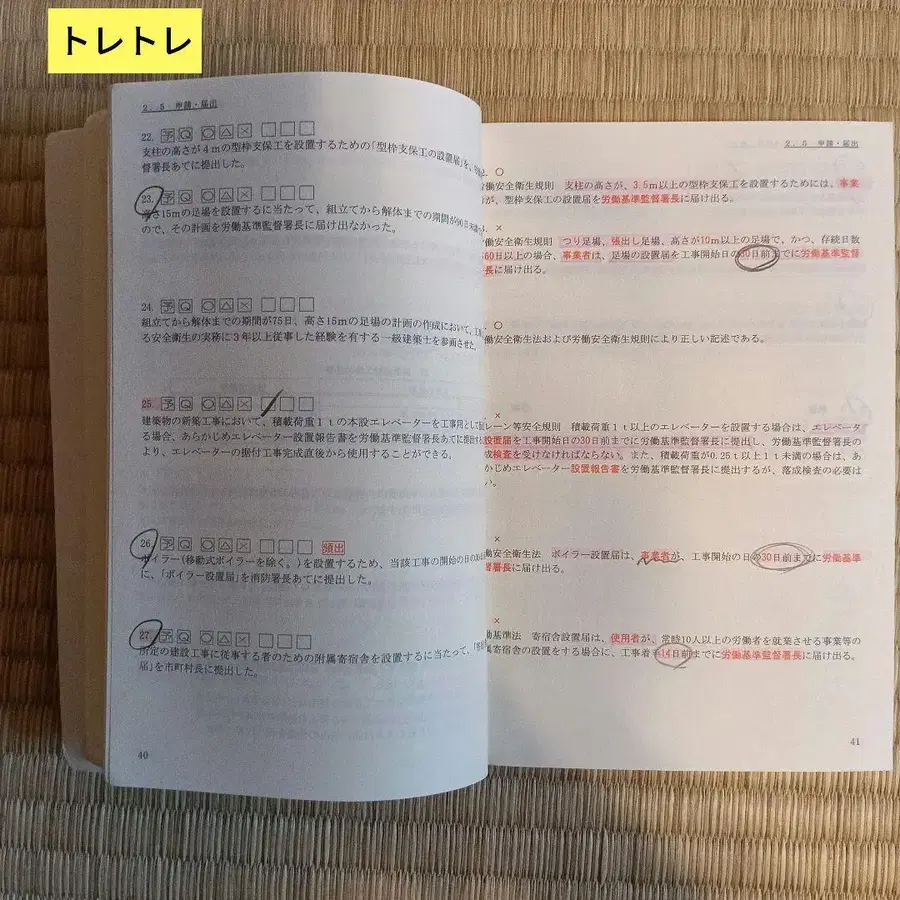 トレトレ
2．5 申請・届出
22. 予 Q ○ △ × □ □ □
支柱の高さが4mの型枠支保工を設置するための「型枠支保工の設置届」を、
督署長あてに提出した。
23. 予 Q ○ △ × □ □ □
高さ15mの足場を設置するに当たって、組立てから解体までの期間が90日未満
ので、その計画を労働基準監督署長に届け出なかった。
24. 予 Q ○ △ × □ □ □
組立てから解体までの期間が75日、高さ15mの足場の計画の作成において、工
る安全衛生の実務に3年以上従事した経験を有する一級建築士を参画させた。
25. 予 Q ○ △ × □ □ □
建築物の新築工事において、積載荷重1tの本設エレベーターを工事用として
る場合、あらかじめエレベーター設置報告書を労働基準監督署長あてに提出す
より、エレベーターの据付工事完成直後から使用することができる。
26. 予 Q ○ △ × □ □ □ 頻出
ボイラー(移動式ボイラーを除く。)を設置するため、当該工事の開始の日の30
に、「ボイラー設置届」を消防署長あてに提出した。
27. 予 Q ○ △ × □ □ □
所定の建設工事に従事する者のための附属寄宿舎を設置するに当たって、「寄
届」を市町村長に提出した。
40
2．5 申請・届出
○
働安全衛生規則 支柱の高さが、3.5m以上の型枠支保工を設置するためには、事業
が、型枠支保工の設置届を労働基準監督署長に届け出る。
×
働安全衛生規則 つり足場、張出し足場、高さが10m以上の足場で、かつ、存続日数
60日以上の場合、事業者は、足場の設置届を工事開始日の30日前までに労働基準監督
長に届け出る。
○
働安全衛生法および労働安全衛生規則により正しい記述である。
×
レーン等安全規則 積載荷重1t以上のエレベーターを設置する場合は、エレベータ
設置届を工事開始日の30日前までに労働基準監督署長に提出し、労働基準監督署長の
成検査を受けなければならない。また、積載荷重が0.25t以上1t未満の場合は、あ
かじめエレベーター設置報告書を労働基準監督署長に提出するが、落成検査の必要は
い。
×
働安全衛生法 ボイラー設置届は、事業者が、工事開始の日の30日前までに労働基準
督署長に届け出る。
×
働基準法 寄宿舎設置届は、使用者が、常時10人以上の労働者を就業させる事業等の
属寄宿舎の設置をする場合に、工事着手14日前までに労働基準監督署長に届け出る。
41